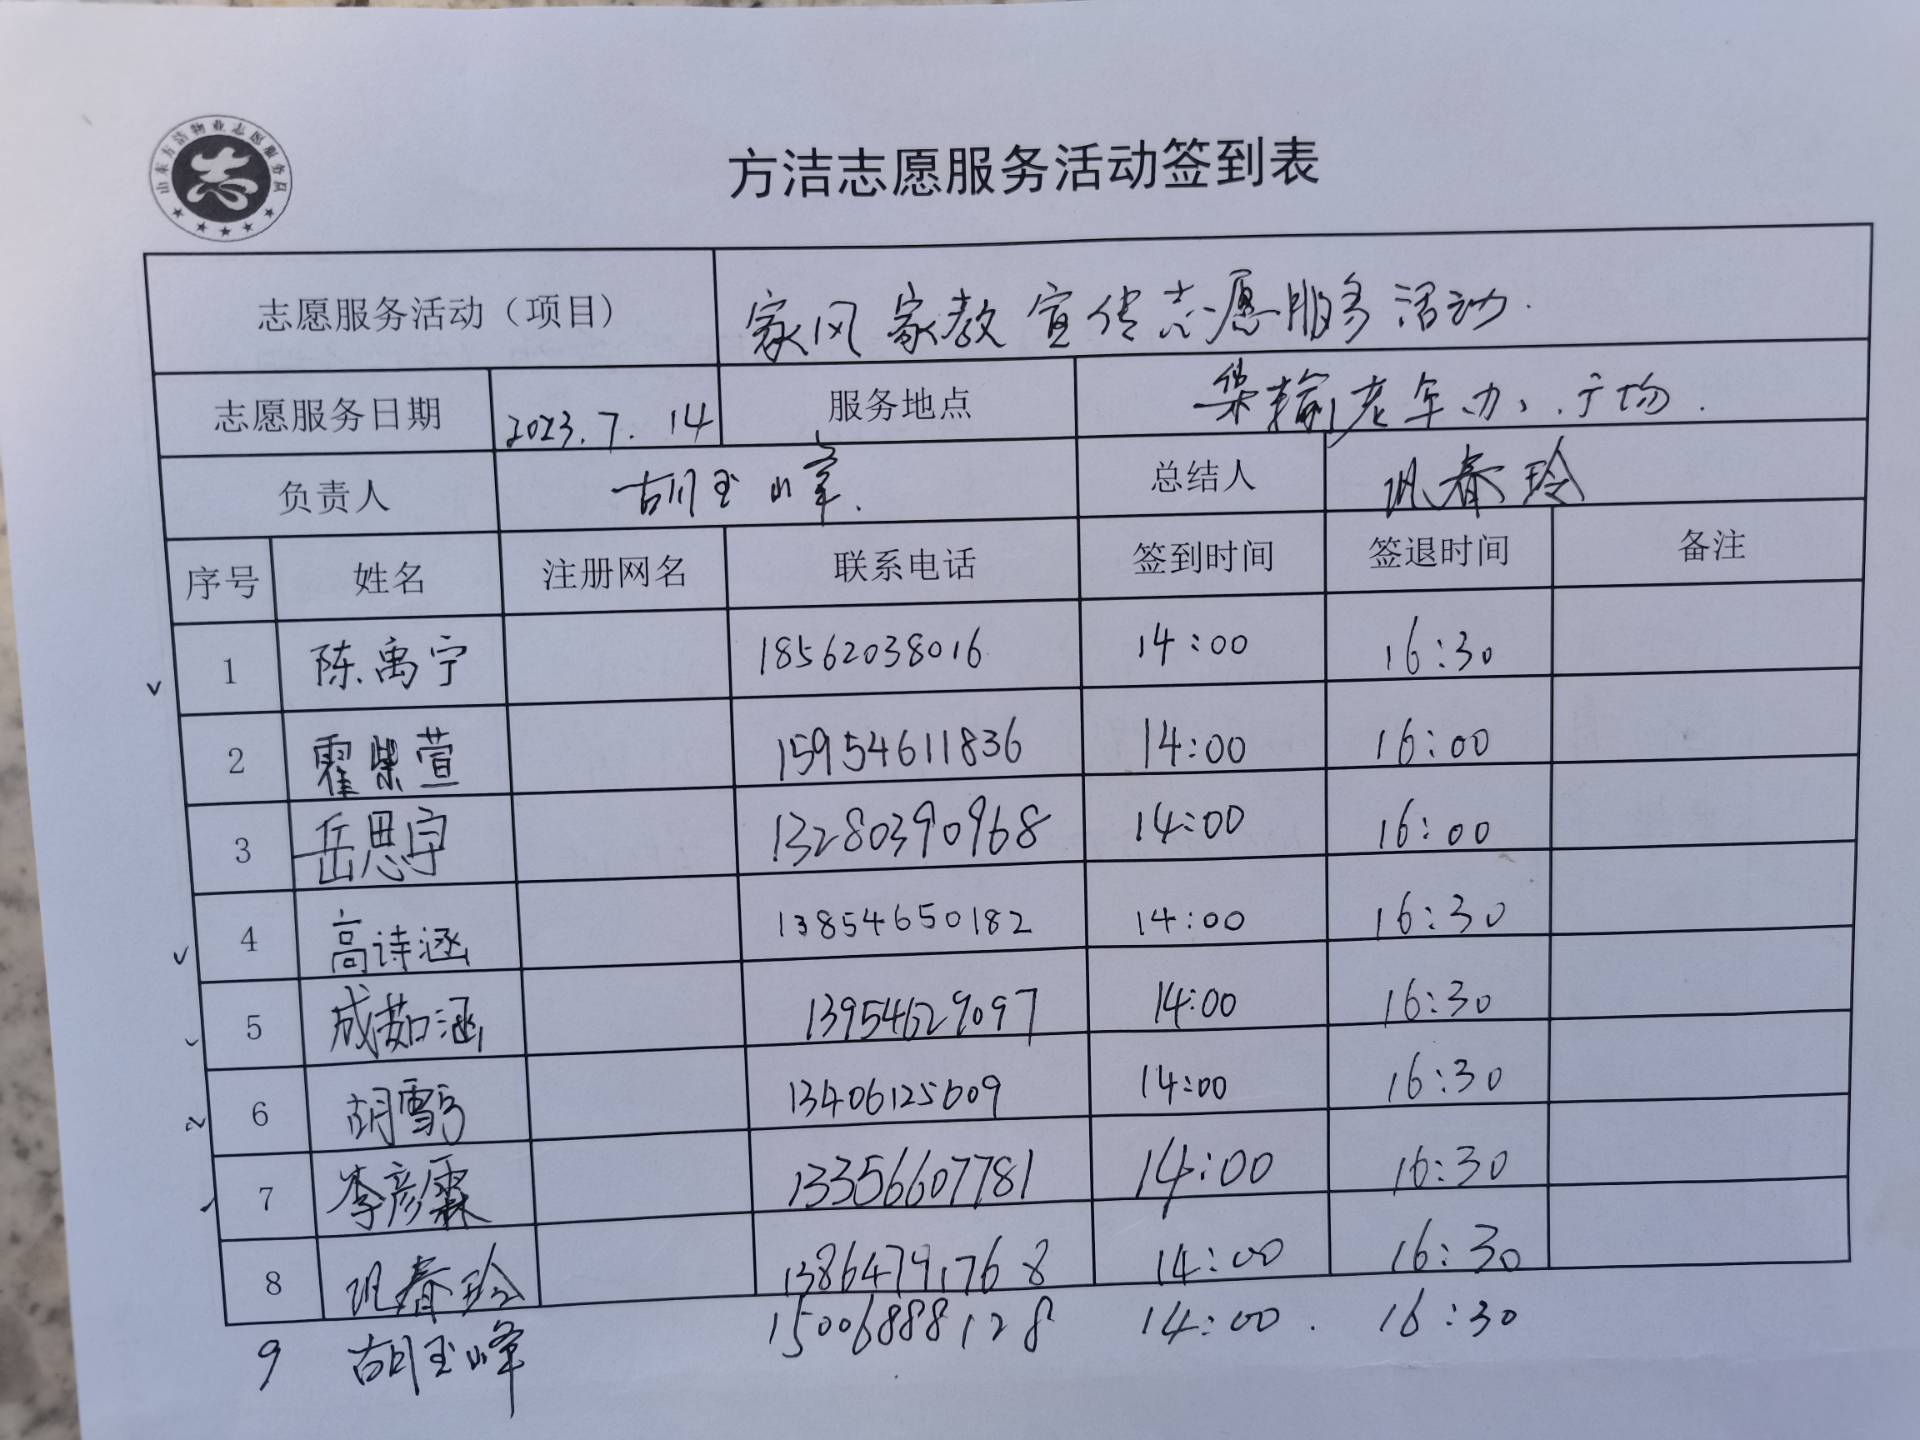 山东方洁物业志愿服务队
志
方洁志愿服务活动签到表
志愿服务活动（项目） 家风家教宣传志愿服务活动.
志愿服务日期 2023.7.14 服务地点 老年办、广场.
负责人 胡玉峰. 总结人 巩春玲
序号 姓名 注册网名 联系电话 签到时间 签退时间 备注
1 陈禹宁 18562038016 14:00 16:30
2 霍紫萱 15954611836 14:00 16:00
3 岳思宇 13280390968 14:00 16:00
4 高诗涵 13854650182 14:00 16:30
5 成茹涵 13954629097 14:00 16:30
6 胡雪 13406125609 14:00 16:30
7 李彦霖 13356607781 14:00 16:30
8 巩春玲 13864791768 14:00 16:30
9 胡玉峰 15006888128 14:00. 16:30